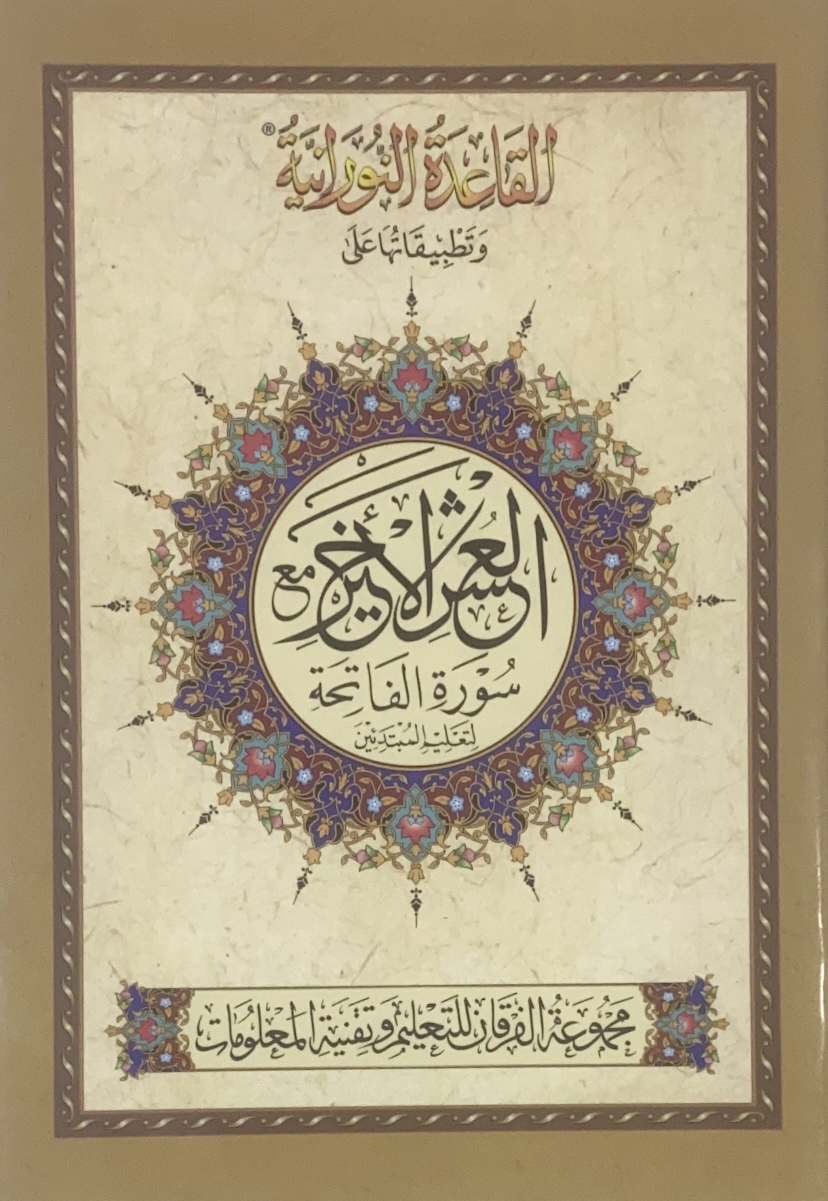 القَاعِدَةُ النُّورَانِيَّةُ ®
وَتَطْبِيقَاتُهَا عَلَى
العُشْرِ الأَخِيرِ مَعَ
سُورَةِ الفَاتِحَةِ
لِتَعْلِيمِ المُبْتَدِئِينَ
مَجْمُوعَةُ الفُرْقَانِ لِلتَّعْلِيمِ وَتِقْنِيَةِ المَعْلُومَاتِ